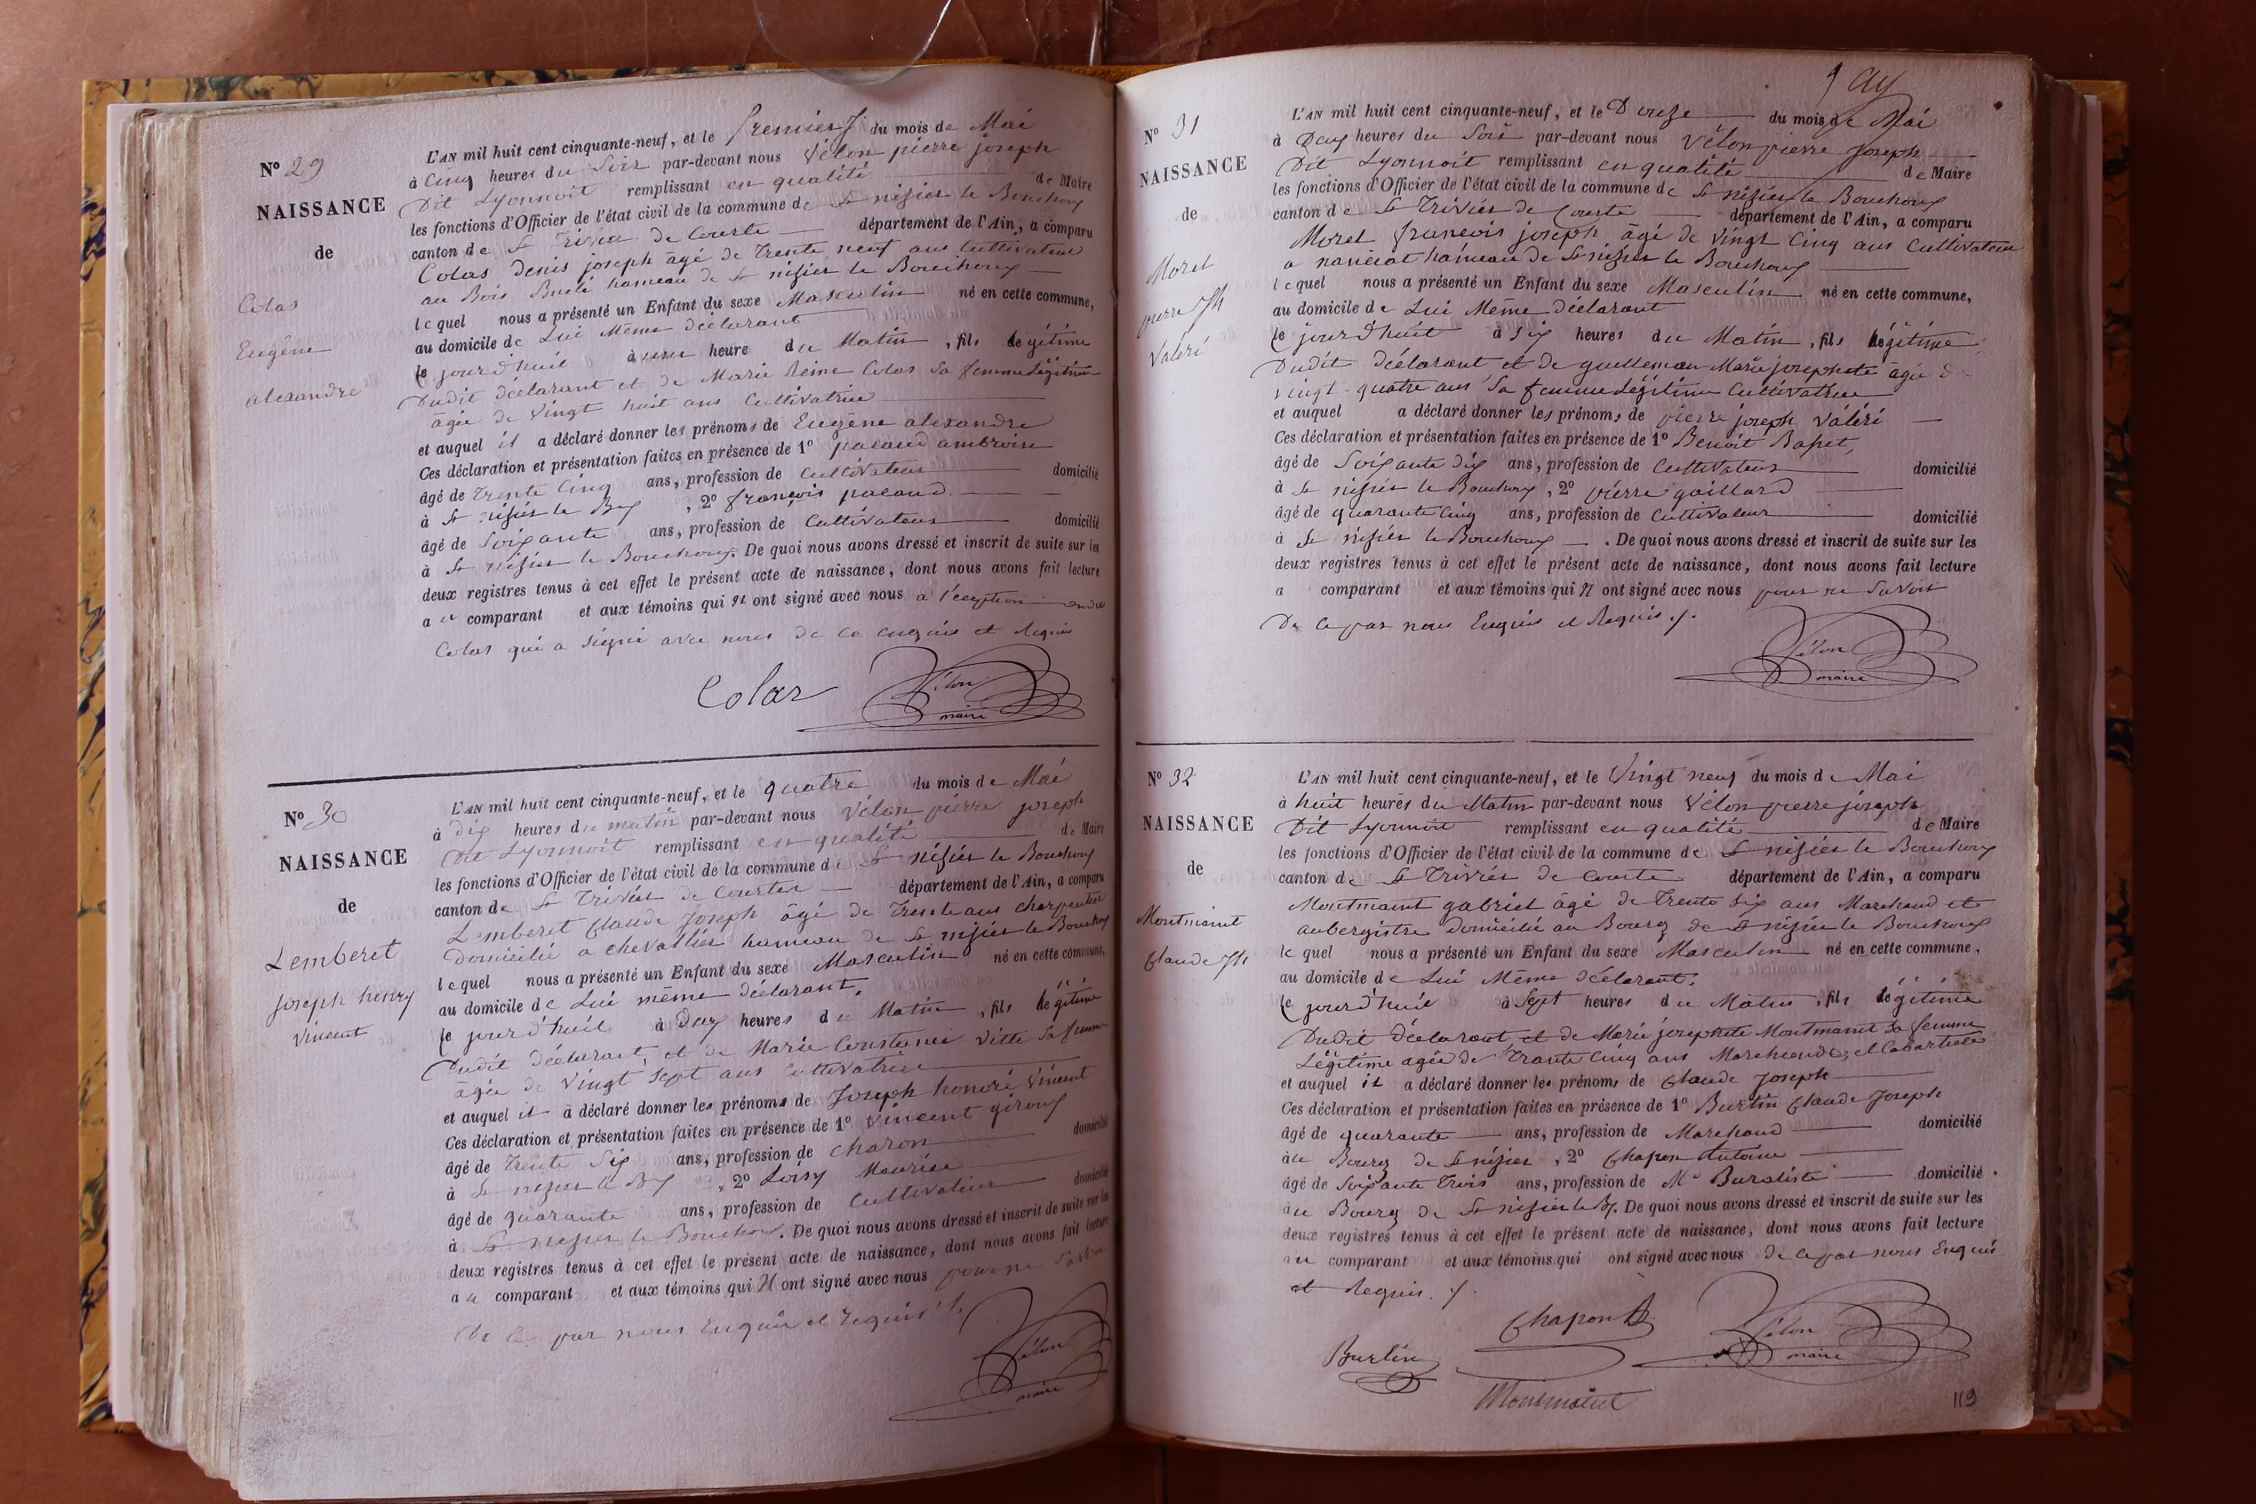 N° 29
NAISSANCE
de
Colas
Eugène
alexandre
L'AN mil huit cent cinquante-neuf, et le premier du mois de Mai
à Cinq heures du Soir par-devant nous Vélon pierre joseph
Dit Lyonnoit remplissant en qualité de Maire
les fonctions d'Officier de l'état civil de la commune de St nisier le Bouchoux
canton de St Trivier de Courte département de l'Ain, a comparu
Colas Denis joseph âgé de Trente neuf ans Cultivateur
au Bois hameau de St nisier le Bouchoux
lequel nous a présenté un Enfant du sexe Masculin né en cette commune,
au domicile de Lui Même déclarant
le jourd'huit à une heure du Matin, fils légitime
Dudit déclarant et de Marie Reine Colas Sa femme Légitime
âgée de Vingt huit ans Cultivatrice
et auquel il a déclaré donner les prénoms de Eugène alexandre
Ces déclaration et présentation faites en présence de 1° pacaud ambroise
âgé de Trente Cinq ans, profession de Cultivateur domicilié
à St nisier le Bx, 2° françois pacaud
âgé de Soixante ans, profession de Cultivateur domicilié
à St nisier le Bouchoux. De quoi nous avons dressé et inscrit de suite sur les
deux registres tenus à cet effet le présent acte de naissance, dont nous avons fait lecture
au comparant et aux témoins qui n ont signé avec nous a l'éception
Colas qui a signé avec nous de ce enquis et Requis
Colas
Vélon
maire
N° 30
NAISSANCE
de
Lemberet
Joseph henry
Vincent
L'AN mil huit cent cinquante-neuf, et le quatre du mois de Mai
à dix heures du matin par-devant nous Vélon pierre joseph
Dit Lyonnoit remplissant en qualité de Maire
les fonctions d'Officier de l'état civil de la commune de St nisier le Bouchoux
canton de St Trivier de Courtes département de l'Ain, a comparu
Lemberet Claude Joseph âgé de Trente ans charpentier
Domicilié a chevallier hameau de St nisier le Bouchoux
lequel nous a présenté un Enfant du sexe Masculin né en cette commune,
au domicile de Lui même déclarant,
le jourd'huit à Dux heures du Matin, fils légitime
Dudit déclarant, et de Marie Constance Vitte Sa femme
âgée de Vingt Sept ans Cultivatrice
et auquel il a déclaré donner les prénoms de Joseph honoré Vincent
Ces déclaration et présentation faites en présence de 1° Vincent giroux
âgé de Trente Six ans, profession de charon domicilié
à St nisier le Bx, 2° Loisy Maurise
âgé de quarante ans, profession de Cultivateur domicilié
à St nisier le Bouchoux. De quoi nous avons dressé et inscrit de suite sur les
deux registres tenus à cet effet le présent acte de naissance, dont nous avons fait lecture
au comparant et aux témoins qui N ont signé avec nous pour ne Savoir
De Ce par nous Enquis et requis
Vélon
maire
N° 31
NAISSANCE
de
Morel
pierre Jh
Valéri
L'AN mil huit cent cinquante-neuf, et le Douze du mois de Mai
à Dux heures du Soir par-devant nous Vélon pierre Joseph
Dit Lyonnoit remplissant en qualité de Maire
les fonctions d'Officier de l'état civil de la commune de St nisier le Bouchoux
canton de St Trivier de Courte département de l'Ain, a comparu
Morel françois joseph âgé de Vingt Cinq ans Cultivateur
a nanciat hameau de St nisier le Bouchoux
lequel nous a présenté un Enfant du sexe Masculin né en cette commune,
au domicile de Lui Même déclarant
le jourd'huit à Six heures du Matin, fils légitime
Dudit déclarant et de guilleman Marie josephete âgée de
vingt-quatre ans Sa femme Légitime Cultivatrice
et auquel a déclaré donner les prénoms de pierre joseph Valéri
Ces déclaration et présentation faites en présence de 1° Benoit Bafret,
âgé de Soixante dix ans, profession de Cultivateur domicilié
à St nisier le Bouchoux, 2° pierre gaillard
âgé de quarante Cinq ans, profession de Cultivateur domicilié
à St nisier le Bouchoux. De quoi nous avons dressé et inscrit de suite sur les
deux registres tenus à cet effet le présent acte de naissance, dont nous avons fait lecture
a comparant et aux témoins qui N ont signé avec nous pour ne Savoir
De Ce par nous Enquis et Requis
Vélon
maire
N° 32
NAISSANCE
de
Montmaint
Claude Jh
L'AN mil huit cent cinquante-neuf, et le Vingt neuf du mois de Mai
à huit heures du Matin par-devant nous Vélon pierre joseph
Dit Lyonnoit remplissant en qualité de Maire
les fonctions d'Officier de l'état civil de la commune de St nisier le Bouchoux
canton de St Trivier de Courte département de l'Ain, a comparu
Montmaint gabriel âgé de Trente Six ans Marchand et
aubergistre Domicilié au Bourg de St nisier le Bouchoux
lequel nous a présenté un Enfant du sexe Masculin né en cette commune,
au domicile de Lui Même déclarant.
le jourd'huit à Sept heures du Matin, fils légitime
Dudit déclarant et de Marie josephete Montmaint Sa femme
Légitime agée de Trante Cinq ans Marchande et
et auquel il a déclaré donner les prénoms de Claude Joseph
Ces déclaration et présentation faites en présence de 1° Burtin Claude Joseph
âgé de quarante ans, profession de Marchand domicilié
au Bourg de St nisier, 2° Chapon Antoine
âgé de Soixante Trois ans, profession de Md Buraliste domicilié
au Bourg de St nisier le Bx. De quoi nous avons dressé et inscrit de suite sur les
deux registres tenus à cet effet le présent acte de naissance, dont nous avons fait lecture
au comparant et aux témoins qui ont signé avec nous de ce par nous Enquis
et Requis
Chapon
Burtin
Vélon
maire
Montmaint
119